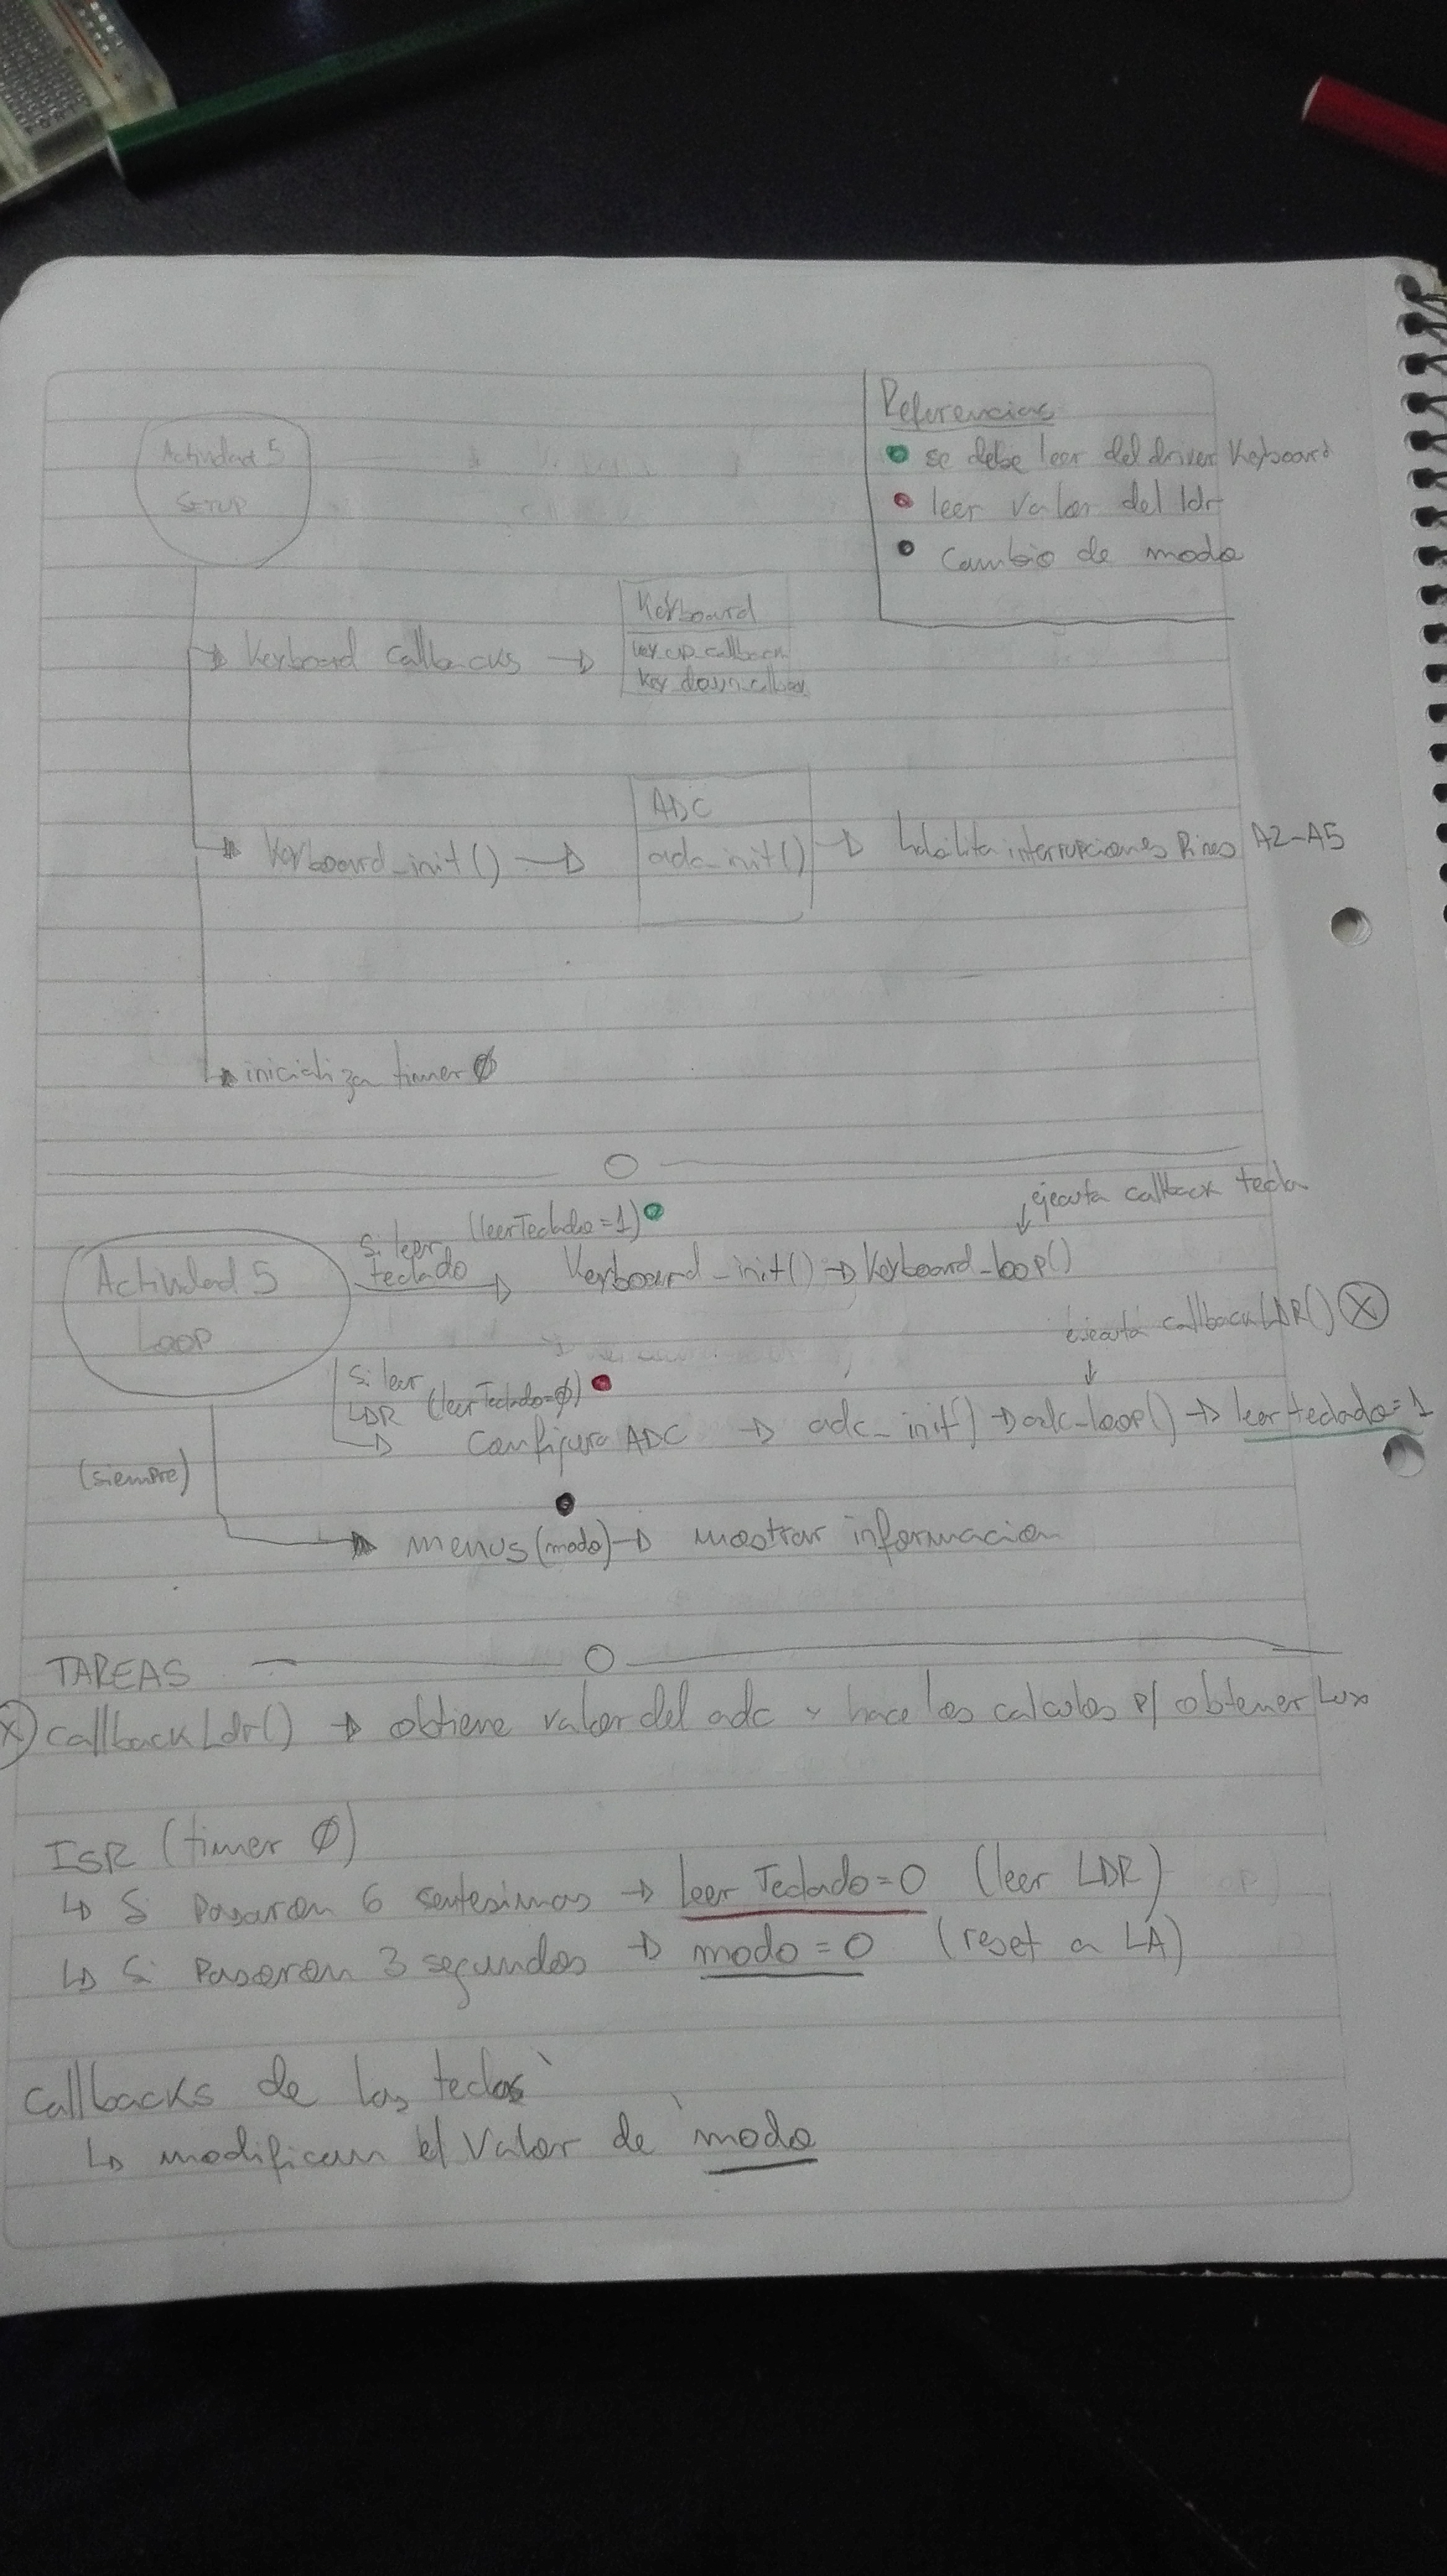 Referencias
se debe leer del driver Keyboard
leer valor del ldr
Cambio de modo
Actividad 5
SETUP
Keyboard callbacks →
Keyboard
key_up_callback
key_down_callback
Keyboard_init() →
ADC
adc_init()
→ habilita interrupciones Pines A2-A5
inicializa timer Ø
Actividad 5
Loop
Si leer (leerTeclado=1)
teclado → Keyboard_init() → Keyboard_loop()
ejecuta callback tecla
ejecuta callbackLDR() Ⓧ
Si leer
LDR (leerTeclado=Ø)
→ Configura ADC → adc_init() → adc_loop() → leer teclado=1
(siempre)
→ menus(modo) → mostrar informacion
TAREAS
Ⓧ callbackLdr() → obtiene valor del adc y hace los calculos p/ obtener Lux
ISR (timer Ø)
↳ Si Pasaron 6 sentesimas → leer Teclado=0 (leer LDR)
↳ Si Pasaron 3 segundos → modo=0 (reset a LA)
Callbacks de las teclas
↳ modifican el valor de modo